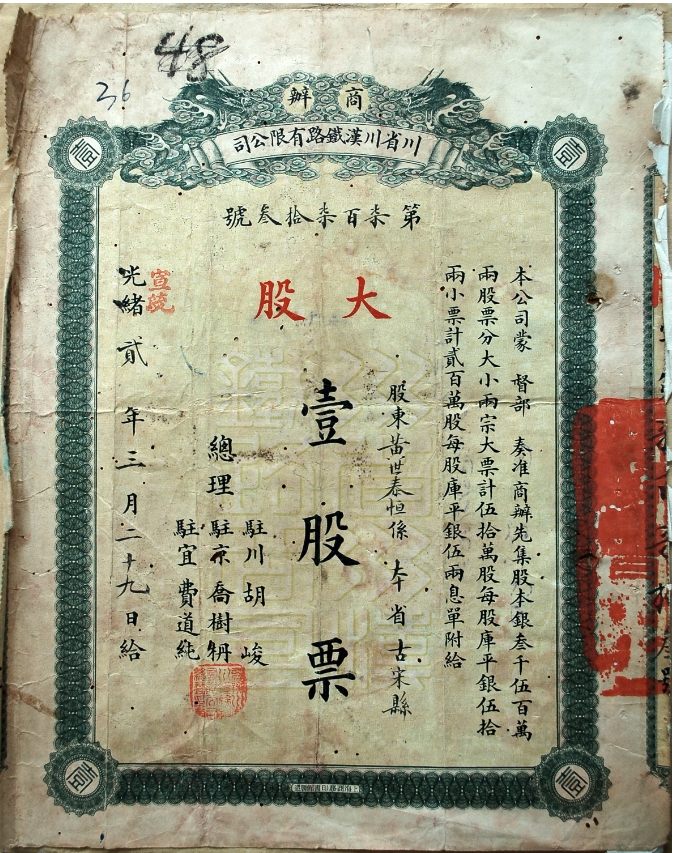 48
36
商辦
川省川漢鐵路有限公司
第柒百柒拾叁號
本公司蒙 督部 奏准商辦先集股本銀叁千伍百萬
兩股票分大小兩宗大票計伍拾萬股每股庫平銀伍拾
兩小票計貳百萬股每股庫平銀伍兩息單附給
大股
股東黃世泰恒係 本省古宋縣
壹股票
總理
駐川胡峻
駐京喬樹枬
駐宜費道純
宣統
光緒貳年三月二十九日給
壹
壹
壹
壹